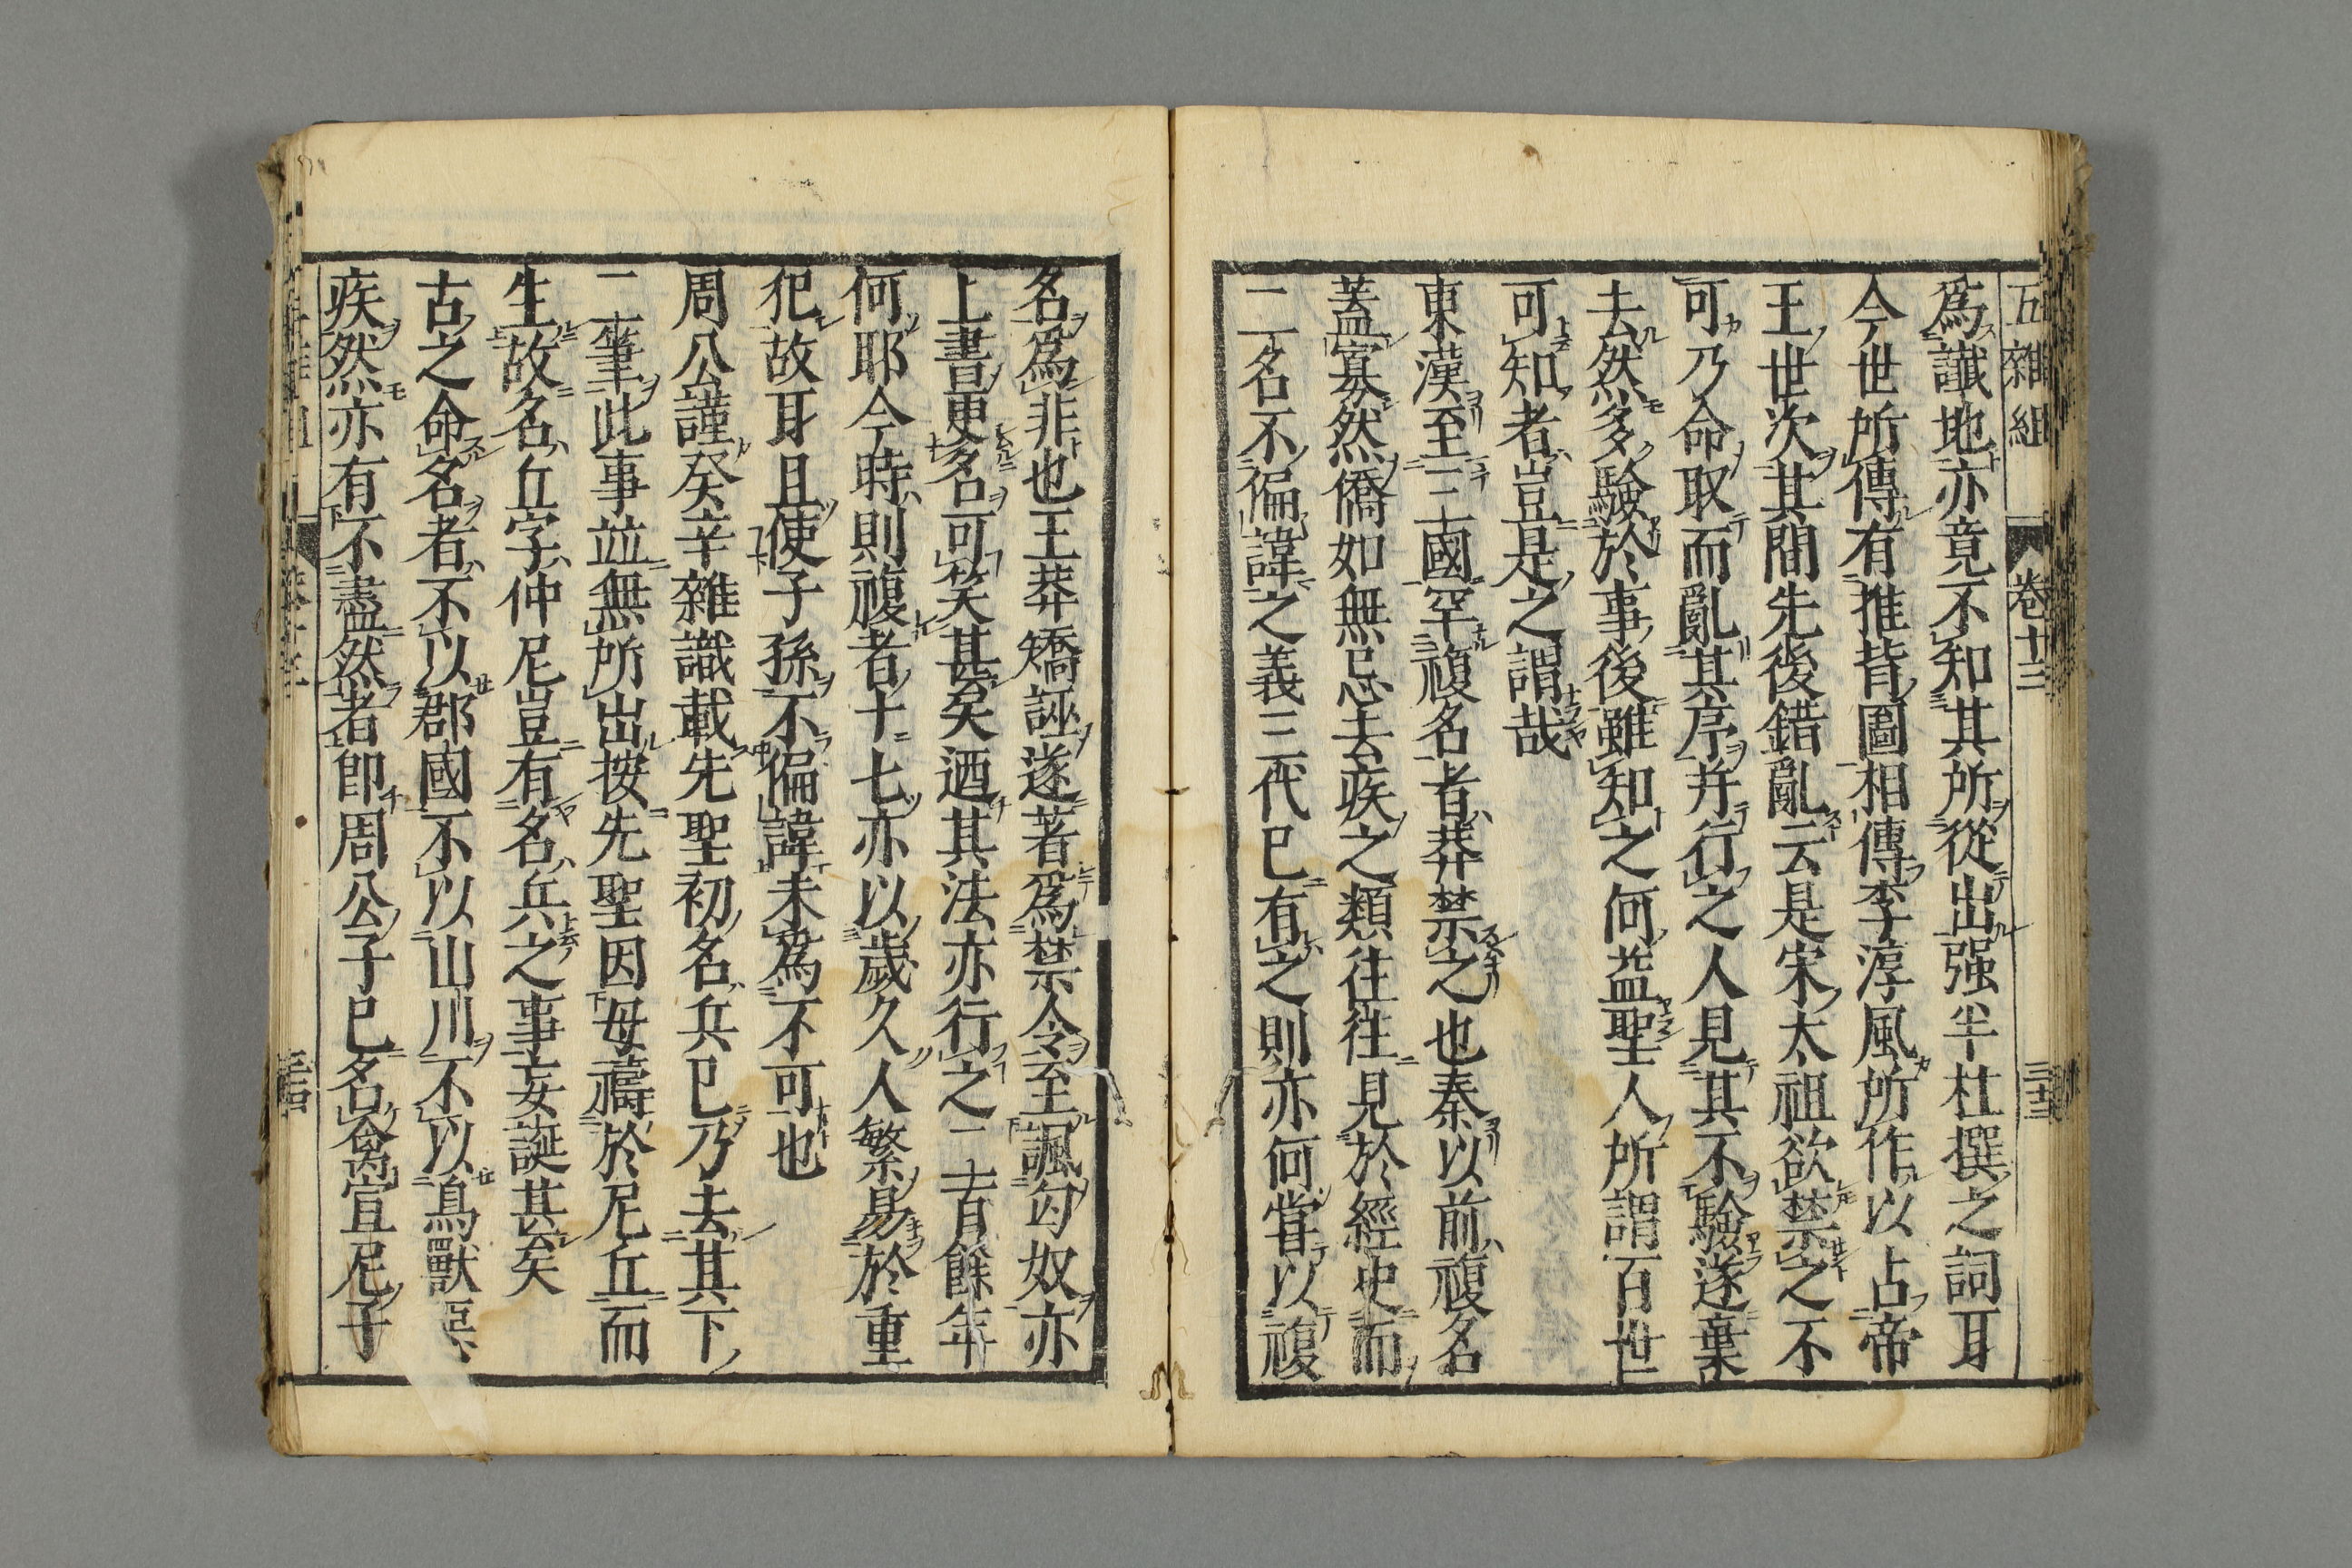 五雜組 卷十三 三十三
爲讖地亦竟不知其所從出强半杜撰之詞耳
今世所傳有推背圖相傳李淳風所作以占帝
王世次其間先後錯亂云是宋太祖欲禁之不
可乃命取而亂其序幷行之人見其不驗遂棄
去然多驗於事後雖知之何益聖人所謂百世
可知者豈是之謂哉
東漢至三國罕複名者莽禁之也秦以前複名
蓋寡然僑如無忌去疾之類往往見於經史而
二名不偏諱之義三代已有之則亦何嘗以複
名爲非也王莽矯誣遂著爲禁令至諷匈奴亦
上書更名可笑甚矣迺其法亦行之二百餘年
何耶今時則複者十七亦以歲久人繁易於重
犯故耳且使子孫不偏諱未爲不可也
周公謹癸辛雜識載先聖初名兵已乃去其下
二筆此事並無所出按先聖因母禱於尼丘而
生故名丘字仲尼豈有名兵之事妄誕甚矣
古之命名者不以郡國不以山川不以鳥獸惡
疾然亦有不盡然者即周公子已名禽宣尼子